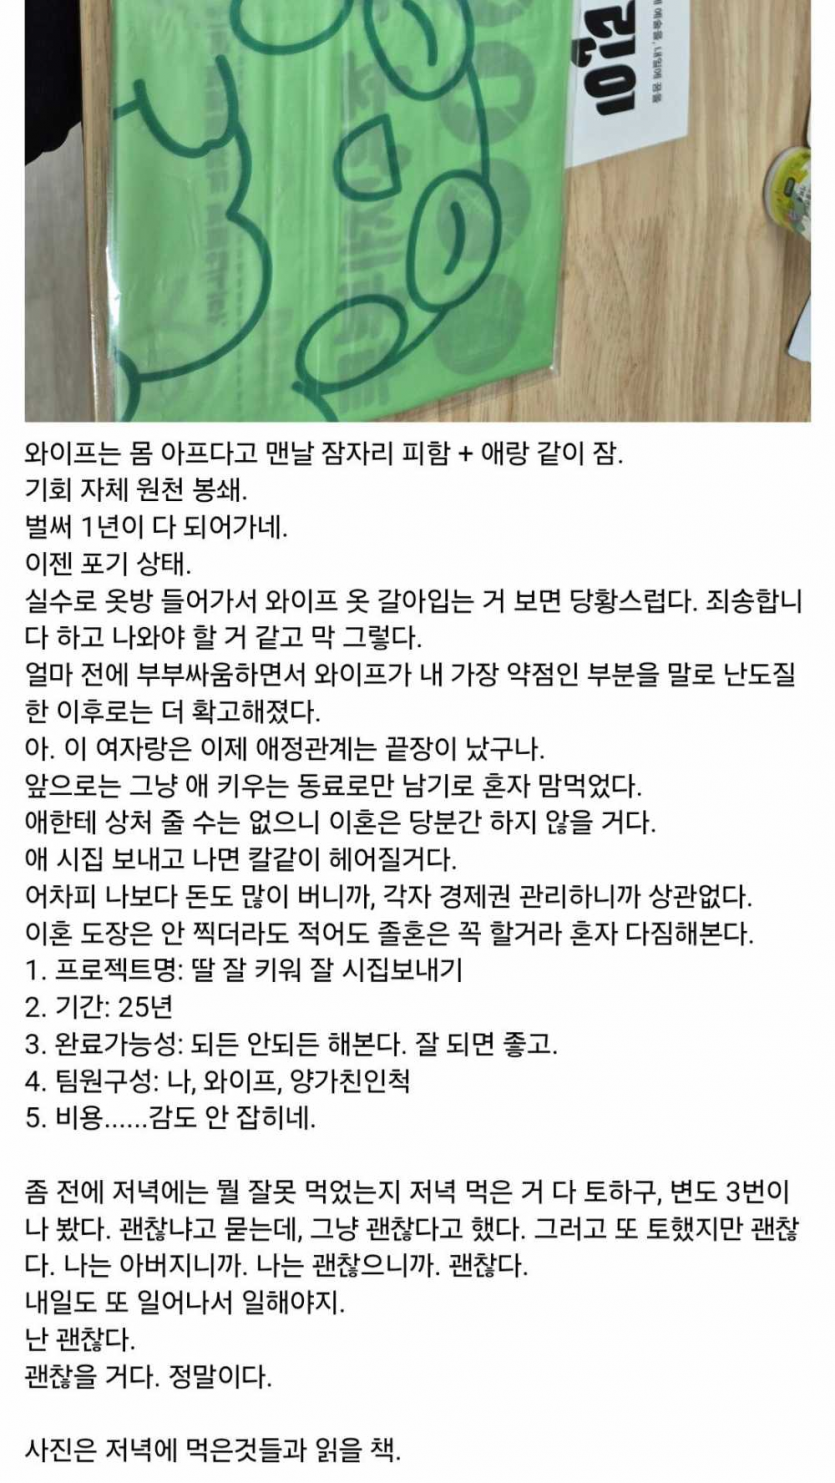 린이
에 예술을, 내일에 꿈을
와이프는 몸 아프다고 맨날 잠자리 피함 + 애랑 같이 잠.
기회 자체 원천 봉쇄.
벌써 1년이 다 되어가네.
이젠 포기 상태.
실수로 옷방 들어가서 와이프 옷 갈아입는 거 보면 당황스럽다. 죄송합니
다 하고 나와야 할 거 같고 막 그렇다.
얼마 전에 부부싸움하면서 와이프가 내 가장 약점인 부분을 말로 난도질
한 이후로는 더 확고해졌다.
아. 이 여자랑은 이제 애정관계는 끝장이 났구나.
앞으로는 그냥 애 키우는 동료로만 남기로 혼자 맘먹었다.
애한테 상처 줄 수는 없으니 이혼은 당분간 하지 않을 거다.
애 시집 보내고 나면 칼같이 헤어질거다.
어차피 나보다 돈도 많이 버니까, 각자 경제권 관리하니까 상관없다.
이혼 도장은 안 찍더라도 적어도 졸혼은 꼭 할거라 혼자 다짐해본다.
1. 프로젝트명: 딸 잘 키워 잘 시집보내기
2. 기간: 25년
3. 완료가능성: 되든 안되든 해본다. 잘 되면 좋고.
4. 팀원구성: 나, 와이프, 양가친인척
5. 비용......감도 안 잡히네.
좀 전에 저녁에는 뭘 잘못 먹었는지 저녁 먹은 거 다 토하구, 변도 3번이
나 봤다. 괜찮냐고 묻는데, 그냥 괜찮다고 했다. 그러고 또 토했지만 괜찮
다. 나는 아버지니까. 나는 괜찮으니까. 괜찮다.
내일도 또 일어나서 일해야지.
난 괜찮다.
괜찮을 거다. 정말이다.
사진은 저녁에 먹은것들과 읽을 책.